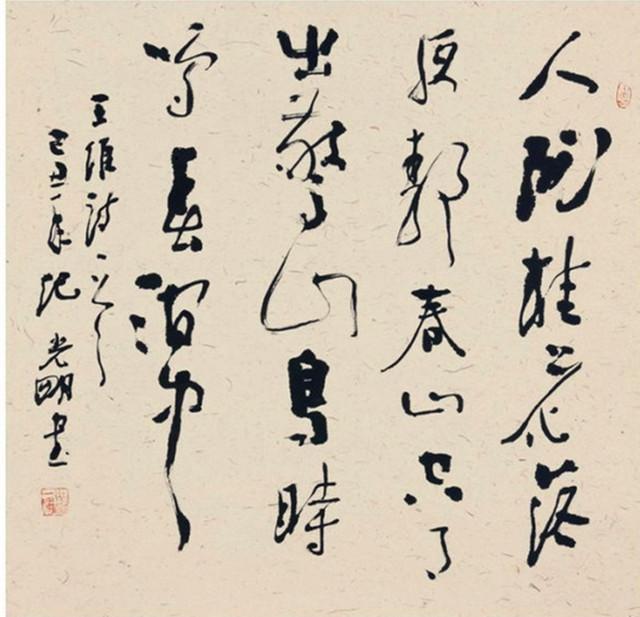 人閒桂花落
夜靜春山空月
出驚山鳥時
鳴春澗中
王維詩一首
己丑年紀光明書